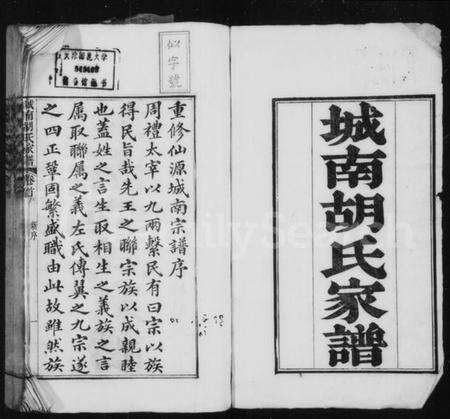 城南胡氏家譜
似字號
重修仙源城南宗譜序
周禮太宰以九兩繫民有曰宗以族
得民旨哉先王之聯宗族以成親睦
也蓋姓之言生取相生之義族之言
屬取聯屬之義左氏傳翼之九宗遂
之四正鞏固繁盛職由此故雖然族
城南胡氏家譜
卷首
新序
一
FamilySearch